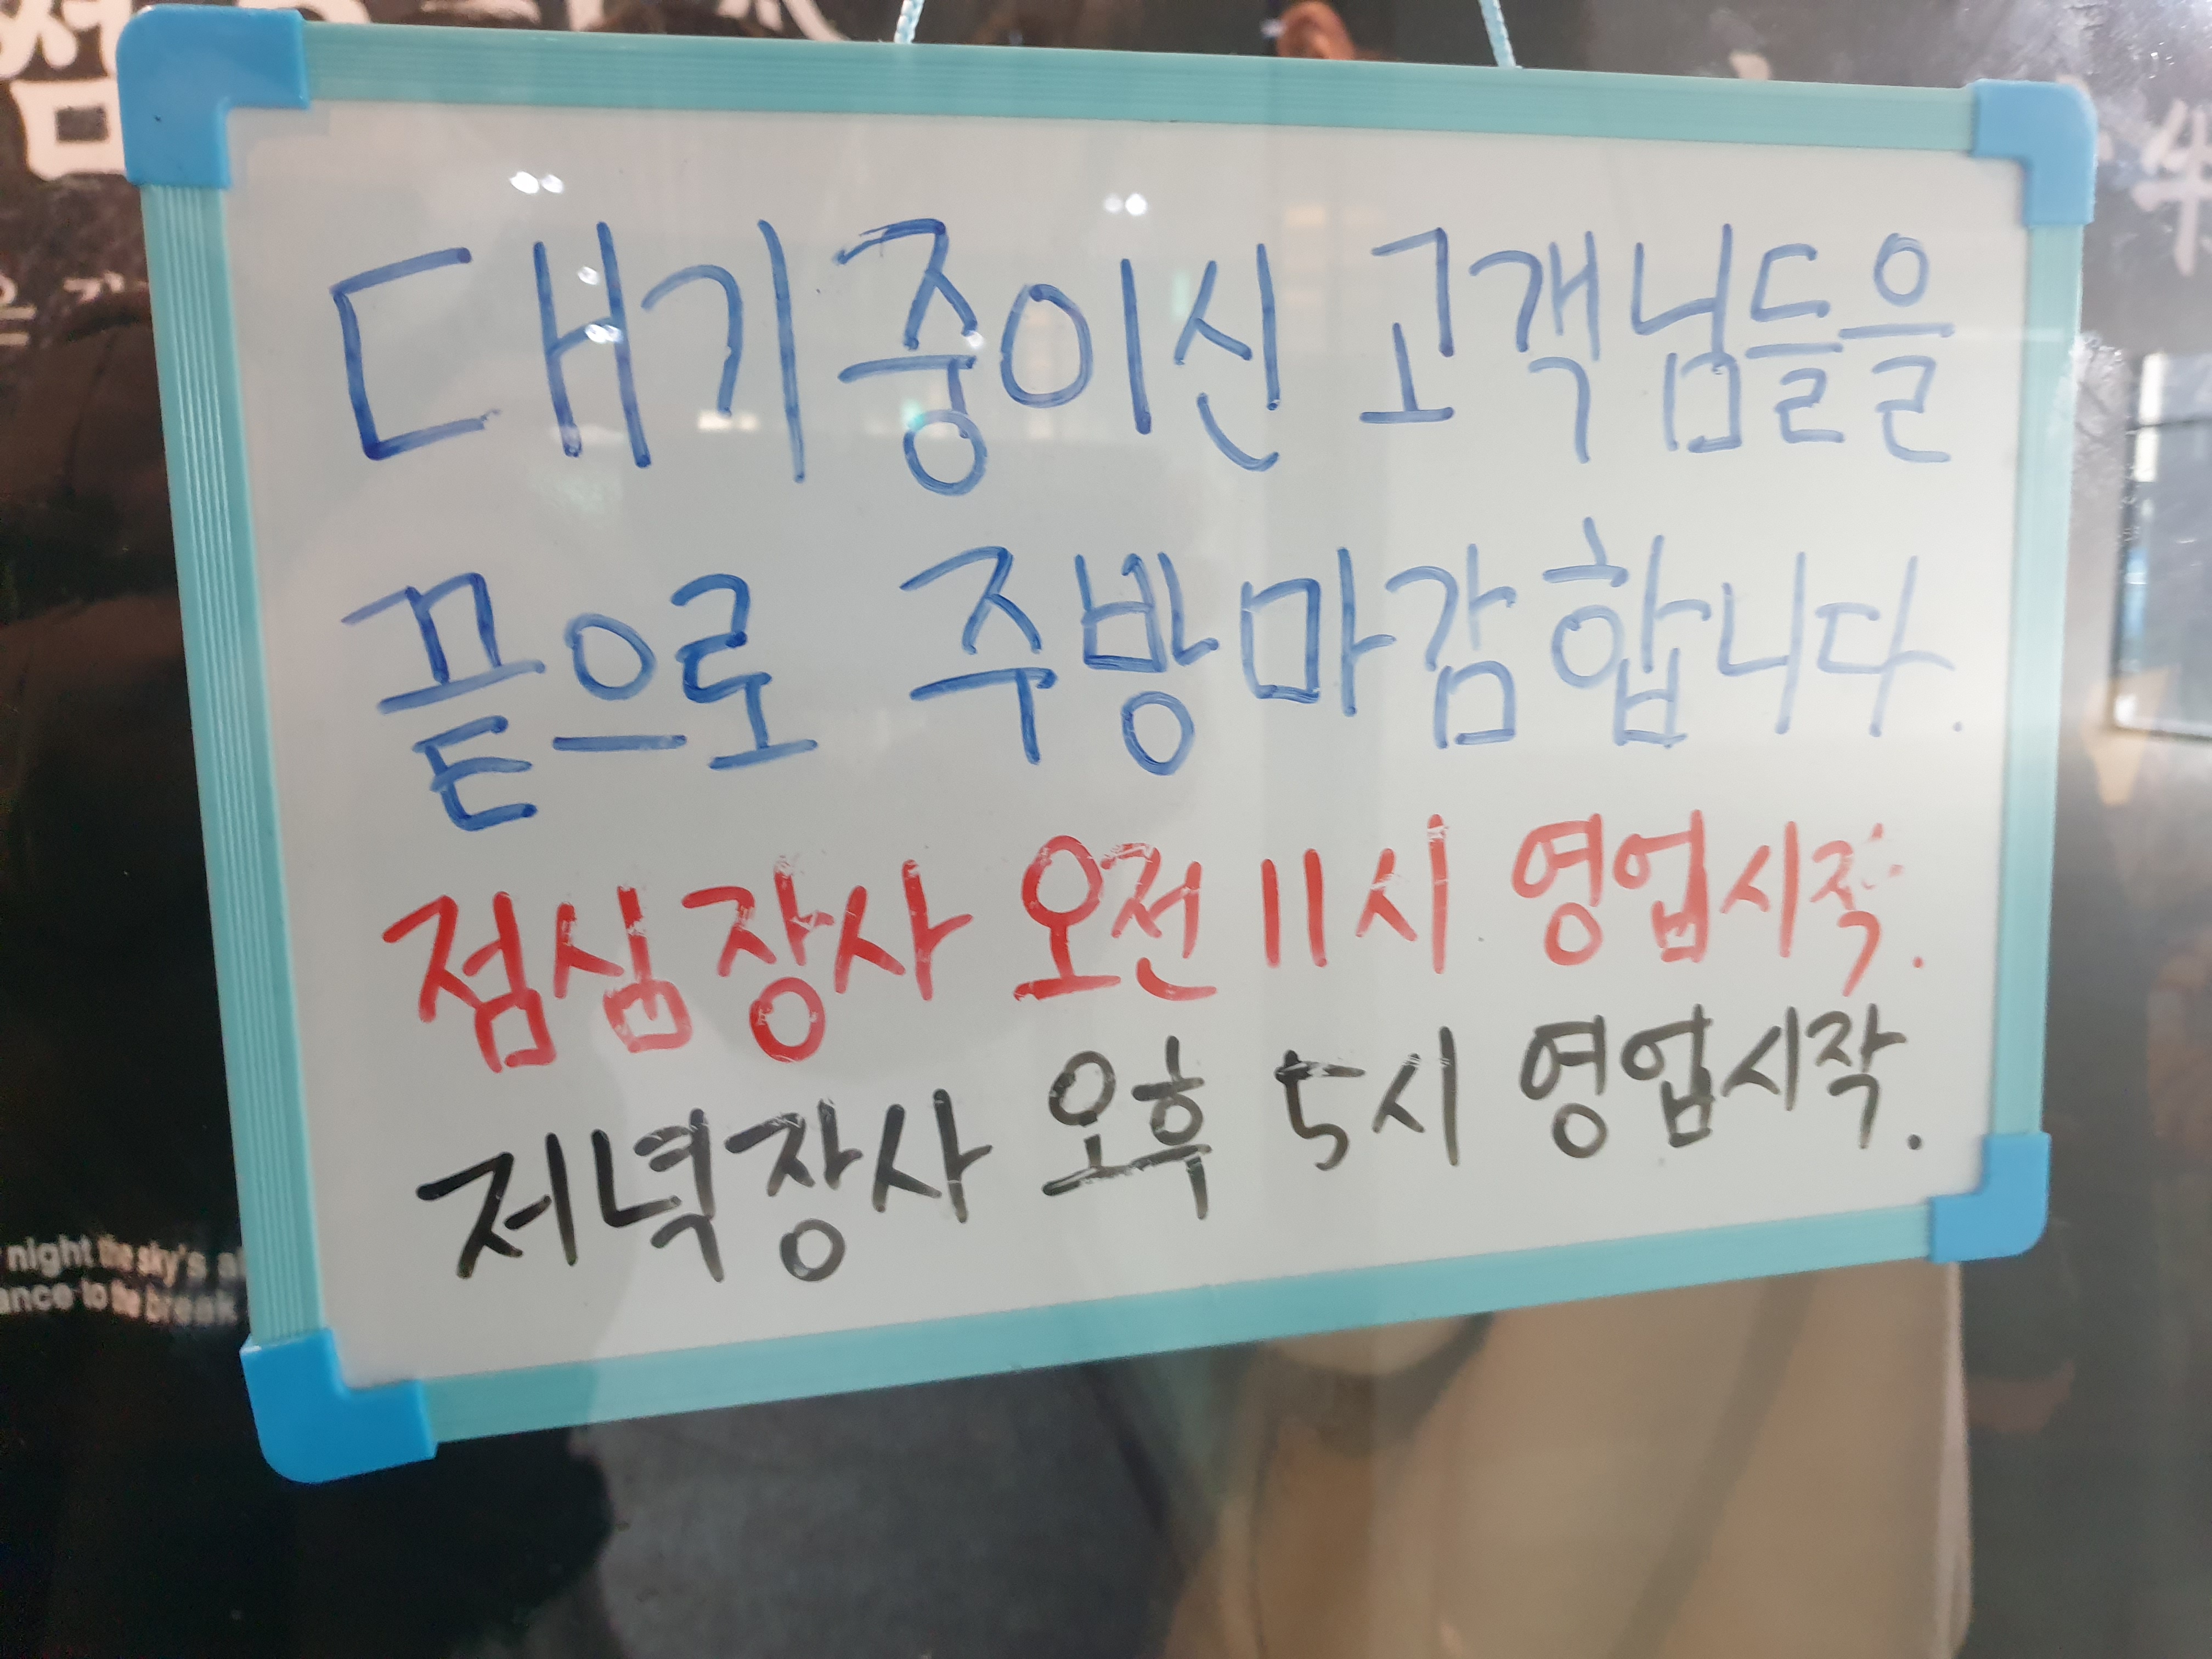 대기중이신 고객님들을
끝으로 주방마감합니다.
점심장사 오전 11시 영업시작.
저녁장사 오후 5시 영업시작.
night the sky's
to the break